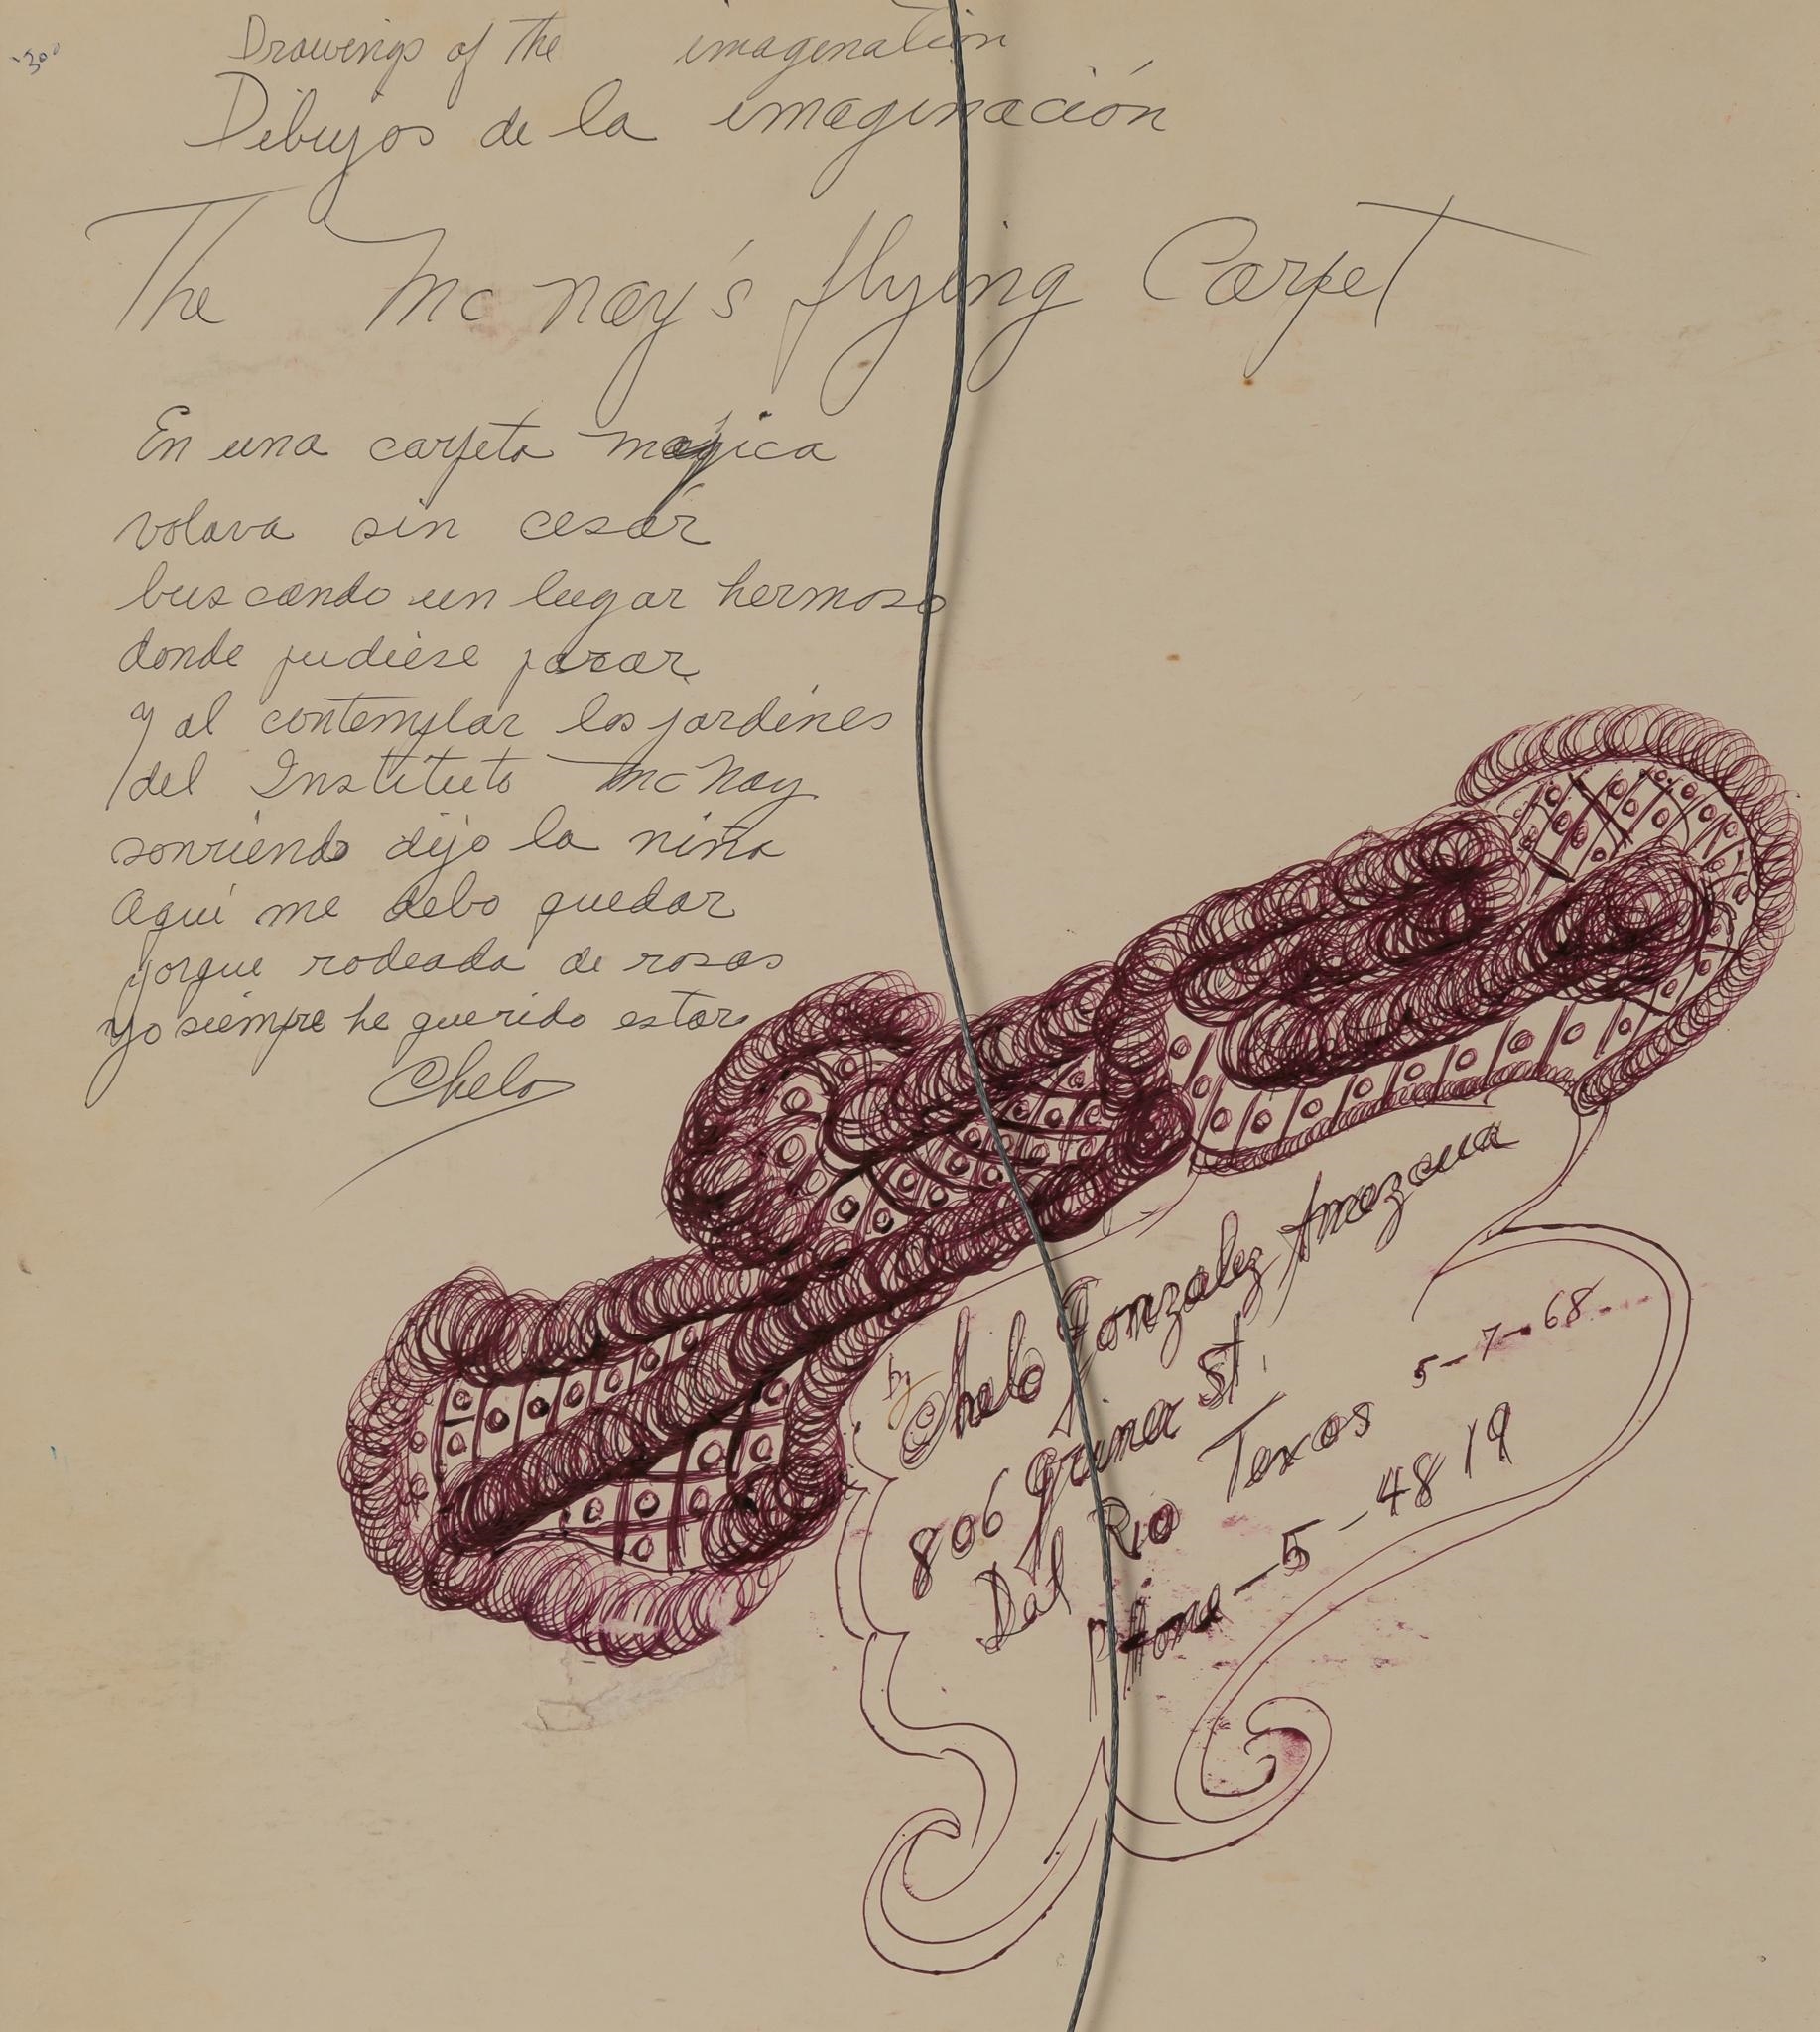 '30°
Drawings of the imagenation
Dibujos de la imaginación
The McNay's flying Carpet
En una carpeta magica
volava sin cesár
buscando un lugar hermoso
donde pudiése pasar
y al contemplar los jardínes
del Instituto McNay
sonriendo dijo la niña
Aquí me debo quedar
porque rodeada de rosas
yo siempre he querido estar
Chelo
by Chelo Gonzalez Amezcua
806 Griner St.
Del Rio Texas 5-7-68
Phone-5-4819